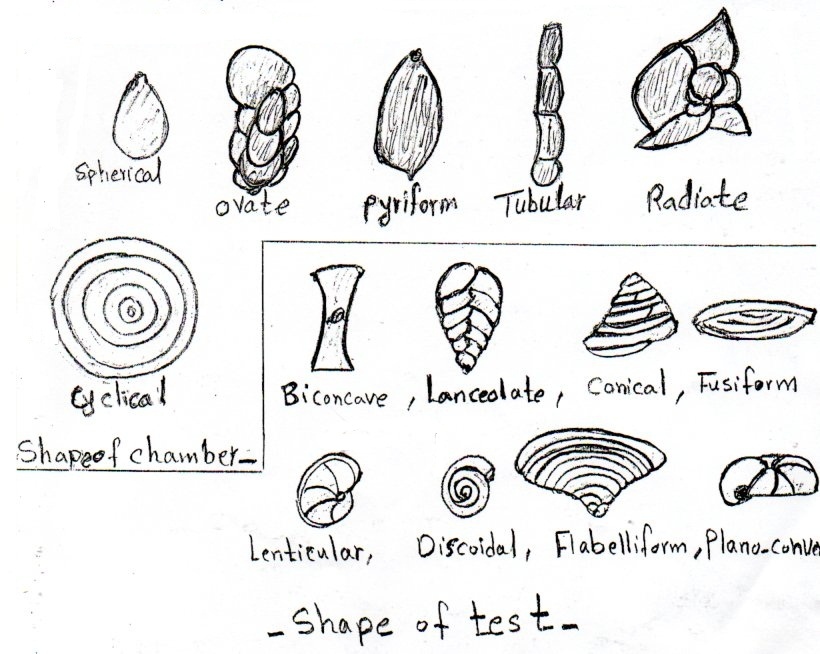 Spherical
ovate
pyriform
Tubular
Radiate
Cyclical
Shape of chamber_
Biconcave , Lanceolate , Conical , Fusiform
Lenticular, Discoidal, Flabelliform, Plano-conve
_ Shape of test _